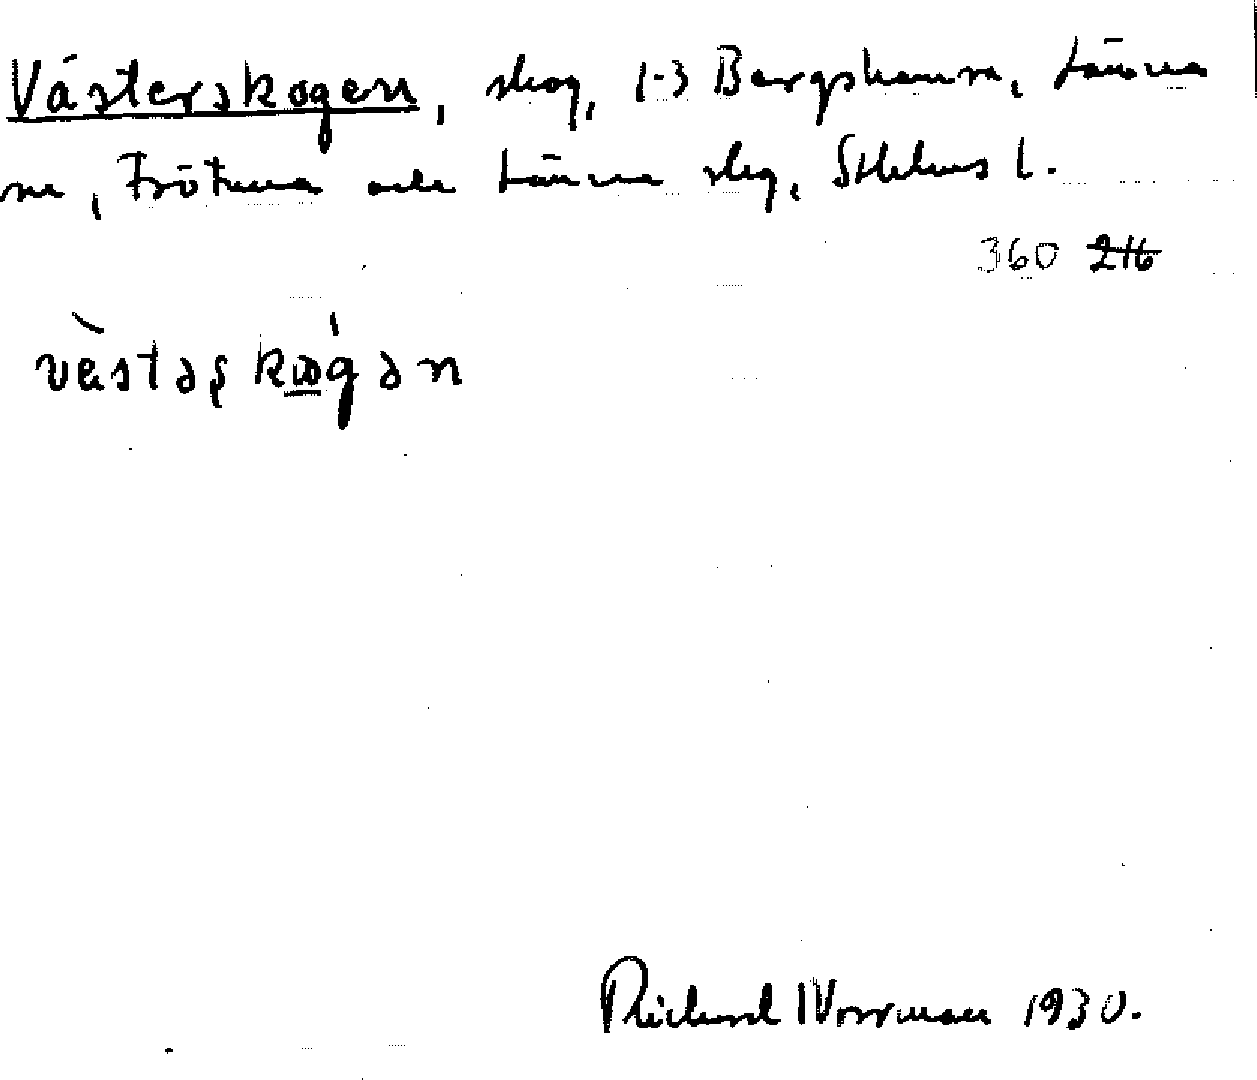 Västerskogen, skog, 1-3 Bergshamra, Länna
sn, Frötuna och Länna slg, Sthlms l.
360 216
vèstəʂkώ̲gən
Richard Norrman 1930.